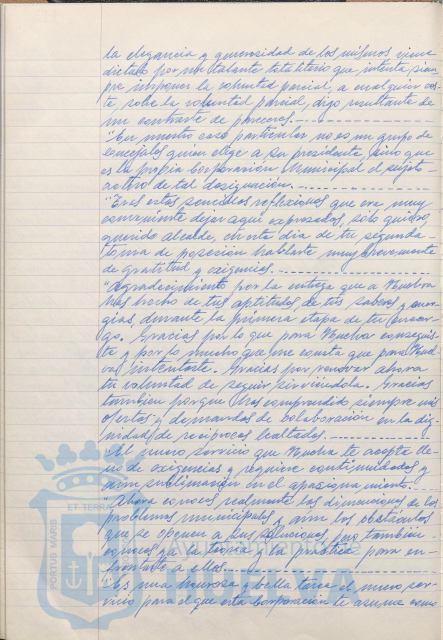 la elegancia y generosidad de los mismos viene
dictado por un talante totalitario que intenta siem
pre imponer la voluntad parcial, a cualquier cos-
te, sobre la voluntad parcial, digo resultante de
un contraste de pareceres.
"En nuestro caso particular no es un grupo de
concejales quien elige a su presidente, sino que
es la propia Corporación Municipal el sujeto
activo de tal designación.
"Tras estas sencillas reflexiones que era muy
conveniente dejar aquí expresadas, sólo quiero,
querido alcalde, en este día de tu segunda
toma de posesión hablarte muy brevemente
de gratitud y exigencias.
"Agradecimiento por la entrega que a Huelva
has hecho de tus aptitudes, de tus saberes y ener
gías, durante la primera etapa de tu encar-
go. Gracias por lo que para Huelva conseguis-
te y por lo mucho que me consta que para Huel
va intentaste. Gracias por renovar ahora
tu voluntad de seguir sirviéndola. Gracias
también porque has comprendido siempre mis
ofertas y demandas de colaboración en la dig-
nidad de recíprocas lealtades.
"El nuevo servicio que Huelva te acepta lle-
no de exigencias y requiere continuidades y
aún sublimación en el apasionamiento.
"Ahora conoces realmente las dimensiones de los
problemas municipales y aún los obstáculos
que se oponen a sus soluciones, pero también
conoces ya la teoría y la práctica para en-
frentarte a ellos.
"Es una hermosa y bella tarea el nuevo ser-
vicio para el que esta Corporación te asume como
PORTUS MARIS
ET TERRAE
HUELVA